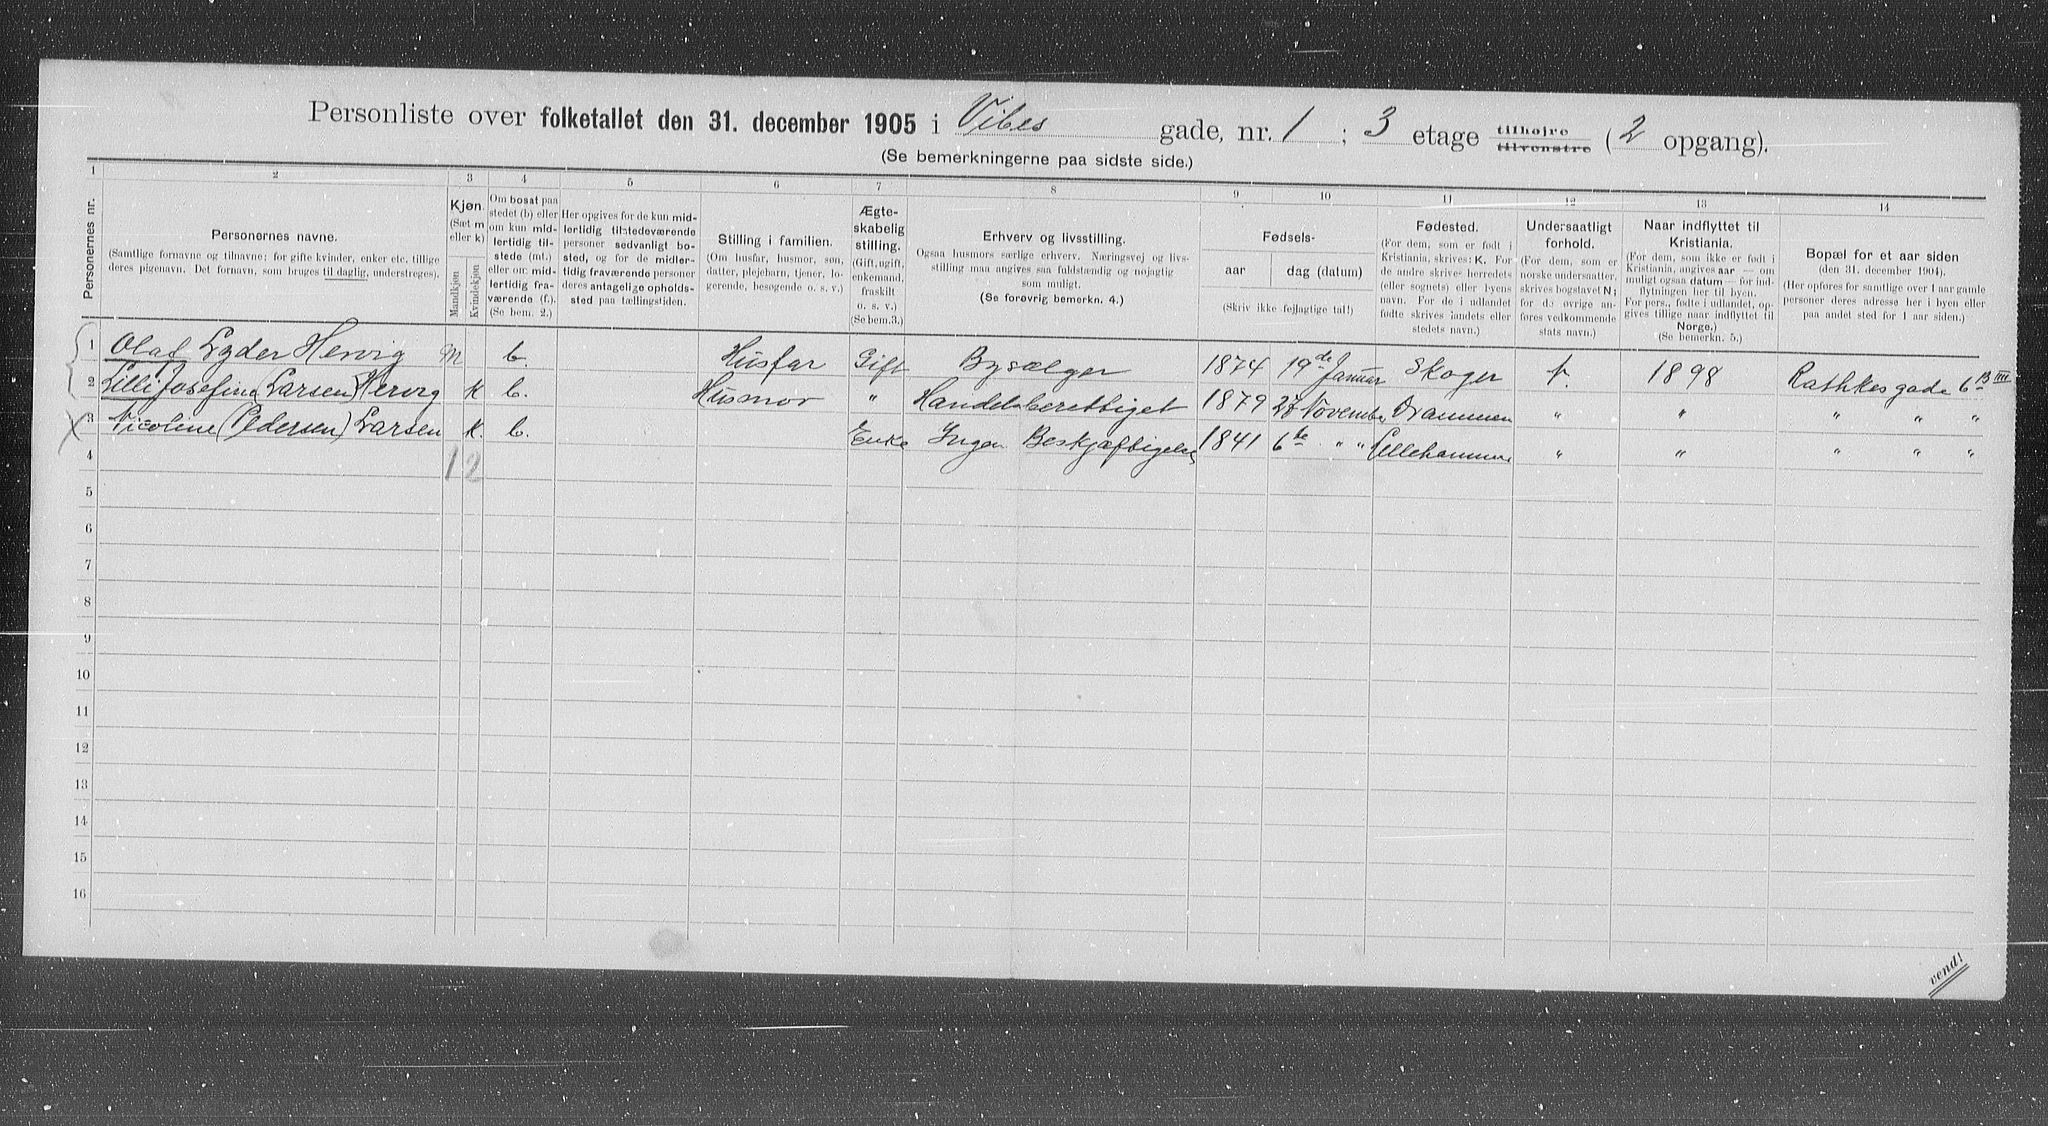 Personliste over folketallet den 31. december 1905 i Vibes gade, nr. 1 ; 3 etage tilhøjre tilvenstre (2 opgang).
(Se bemerkningerne paa sidste side.)
1 2 3 4 5 6 7 8 9 10 11 12 13 14
Personernes nr.
Personernes navne.
(Samtlige fornavne og tilnavne; for gifte kvinder, enker etc. tillige
deres pigenavn. Det fornavn, som bruges til daglig, understreges).
Kjøn.
(Sæt m
eller k)
Mandkjøn
Kvindekjøn
Om bosat paa
stedet (b) eller
om kun mid-
lertidig til-
stede (mt.)
eller om mid-
lertidig fra-
værende (f.).
(Se bem. 2.)
Her opgives for de kun mid-
lertidig tilstedeværende
personer sedvanligt bo-
sted, og for de midler-
tidig fraværende personer
deres antagelige opholds-
sted paa tællingstiden.
Stilling i familien.
(Om husfar, husmor, søn,
datter, plejebarn, tjener, lo-
gerende, besøgende o. s. v.)
Ægte-
skabelig
stilling.
(Gift, ugift,
enkemand,
fraskilt
o. s. v.)
(Se bem.3.)
Erhverv og livsstilling.
Ogsaa husmors særlige erhverv. Næringsvej og livs-
stilling maa angives saa fuldstændig og nøjagtig
som muligt.
(Se forøvrig bemerkn. 4.)
Fødsels-
aar dag (datum)
(Skriv ikke fejlagtige tal!)
Fødested.
(For dem, som er født i
Kristiania, skrives: K. For
de andre skrives herredets
(eller sognets) eller byens
navn. For de i udlandet
fødte skrives landets eller
stedets navn.)
Undersaatligt
forhold.
(For dem, som er
norske undersaatter,
skrives bogstavet N;
for de øvrige an-
føres vedkommende
stats navn.)
Naar indflyttet til
Kristiania.
(For dem, som ikke er født i
Kristiania, angives aar — om
muligt ogsaa datum — for ind-
flytningen her til byen.
For pers., fødte i udlandet, op-
gives tillige naar indflyttet til
Norge.)
(Se bemerkn. 5.)
Bopæl for et aar siden
(den 31. december 1904).
(Her opføres for samtlige over 1 aar gamle
personer deres adresse her i byen eller
paa andet sted for 1 aar siden.)
1 Olaf Lyder Hervig M b. Husfar Gift Bysælger 1874 19de Januar Skoger N. 1898 Rathkes gade 6B III
2 Lilli Josefine (Larsen) Hervig K b. Husmor " Handelsberettiget 1879 28 November Drammen " " " " "
3 Nicoline (Pedersen) Larsen K. b. Enke Ingen Beskjæftigelse 1841 6te " " Lillehammer " " " " "
4 1 2
5
6
7
8
9
10
11
12
13
14
15
16
vend!